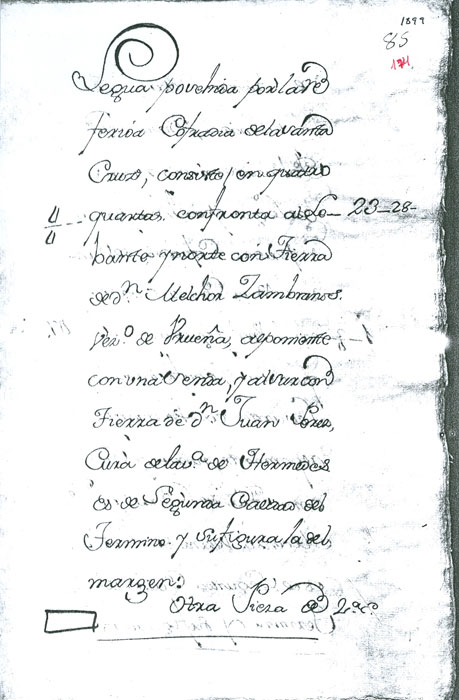 1899
85
171.
Segua povehida por la re
ferida Cofradia de la vanta
Cruz, consiste, en quatro
quartas. confronta al le- 23-28-
bante y norte con Tierra
de dn Melchor Zambranos.
vezo. de Prueña, al poniente
con una senda, y al sur con
Tierra de dn Juan Perez,
Cura de la va. de Hermedes
es de Segunda Calidad del
Termino. y su figura la del
margen:
Otra Pieza de 2a. ca.